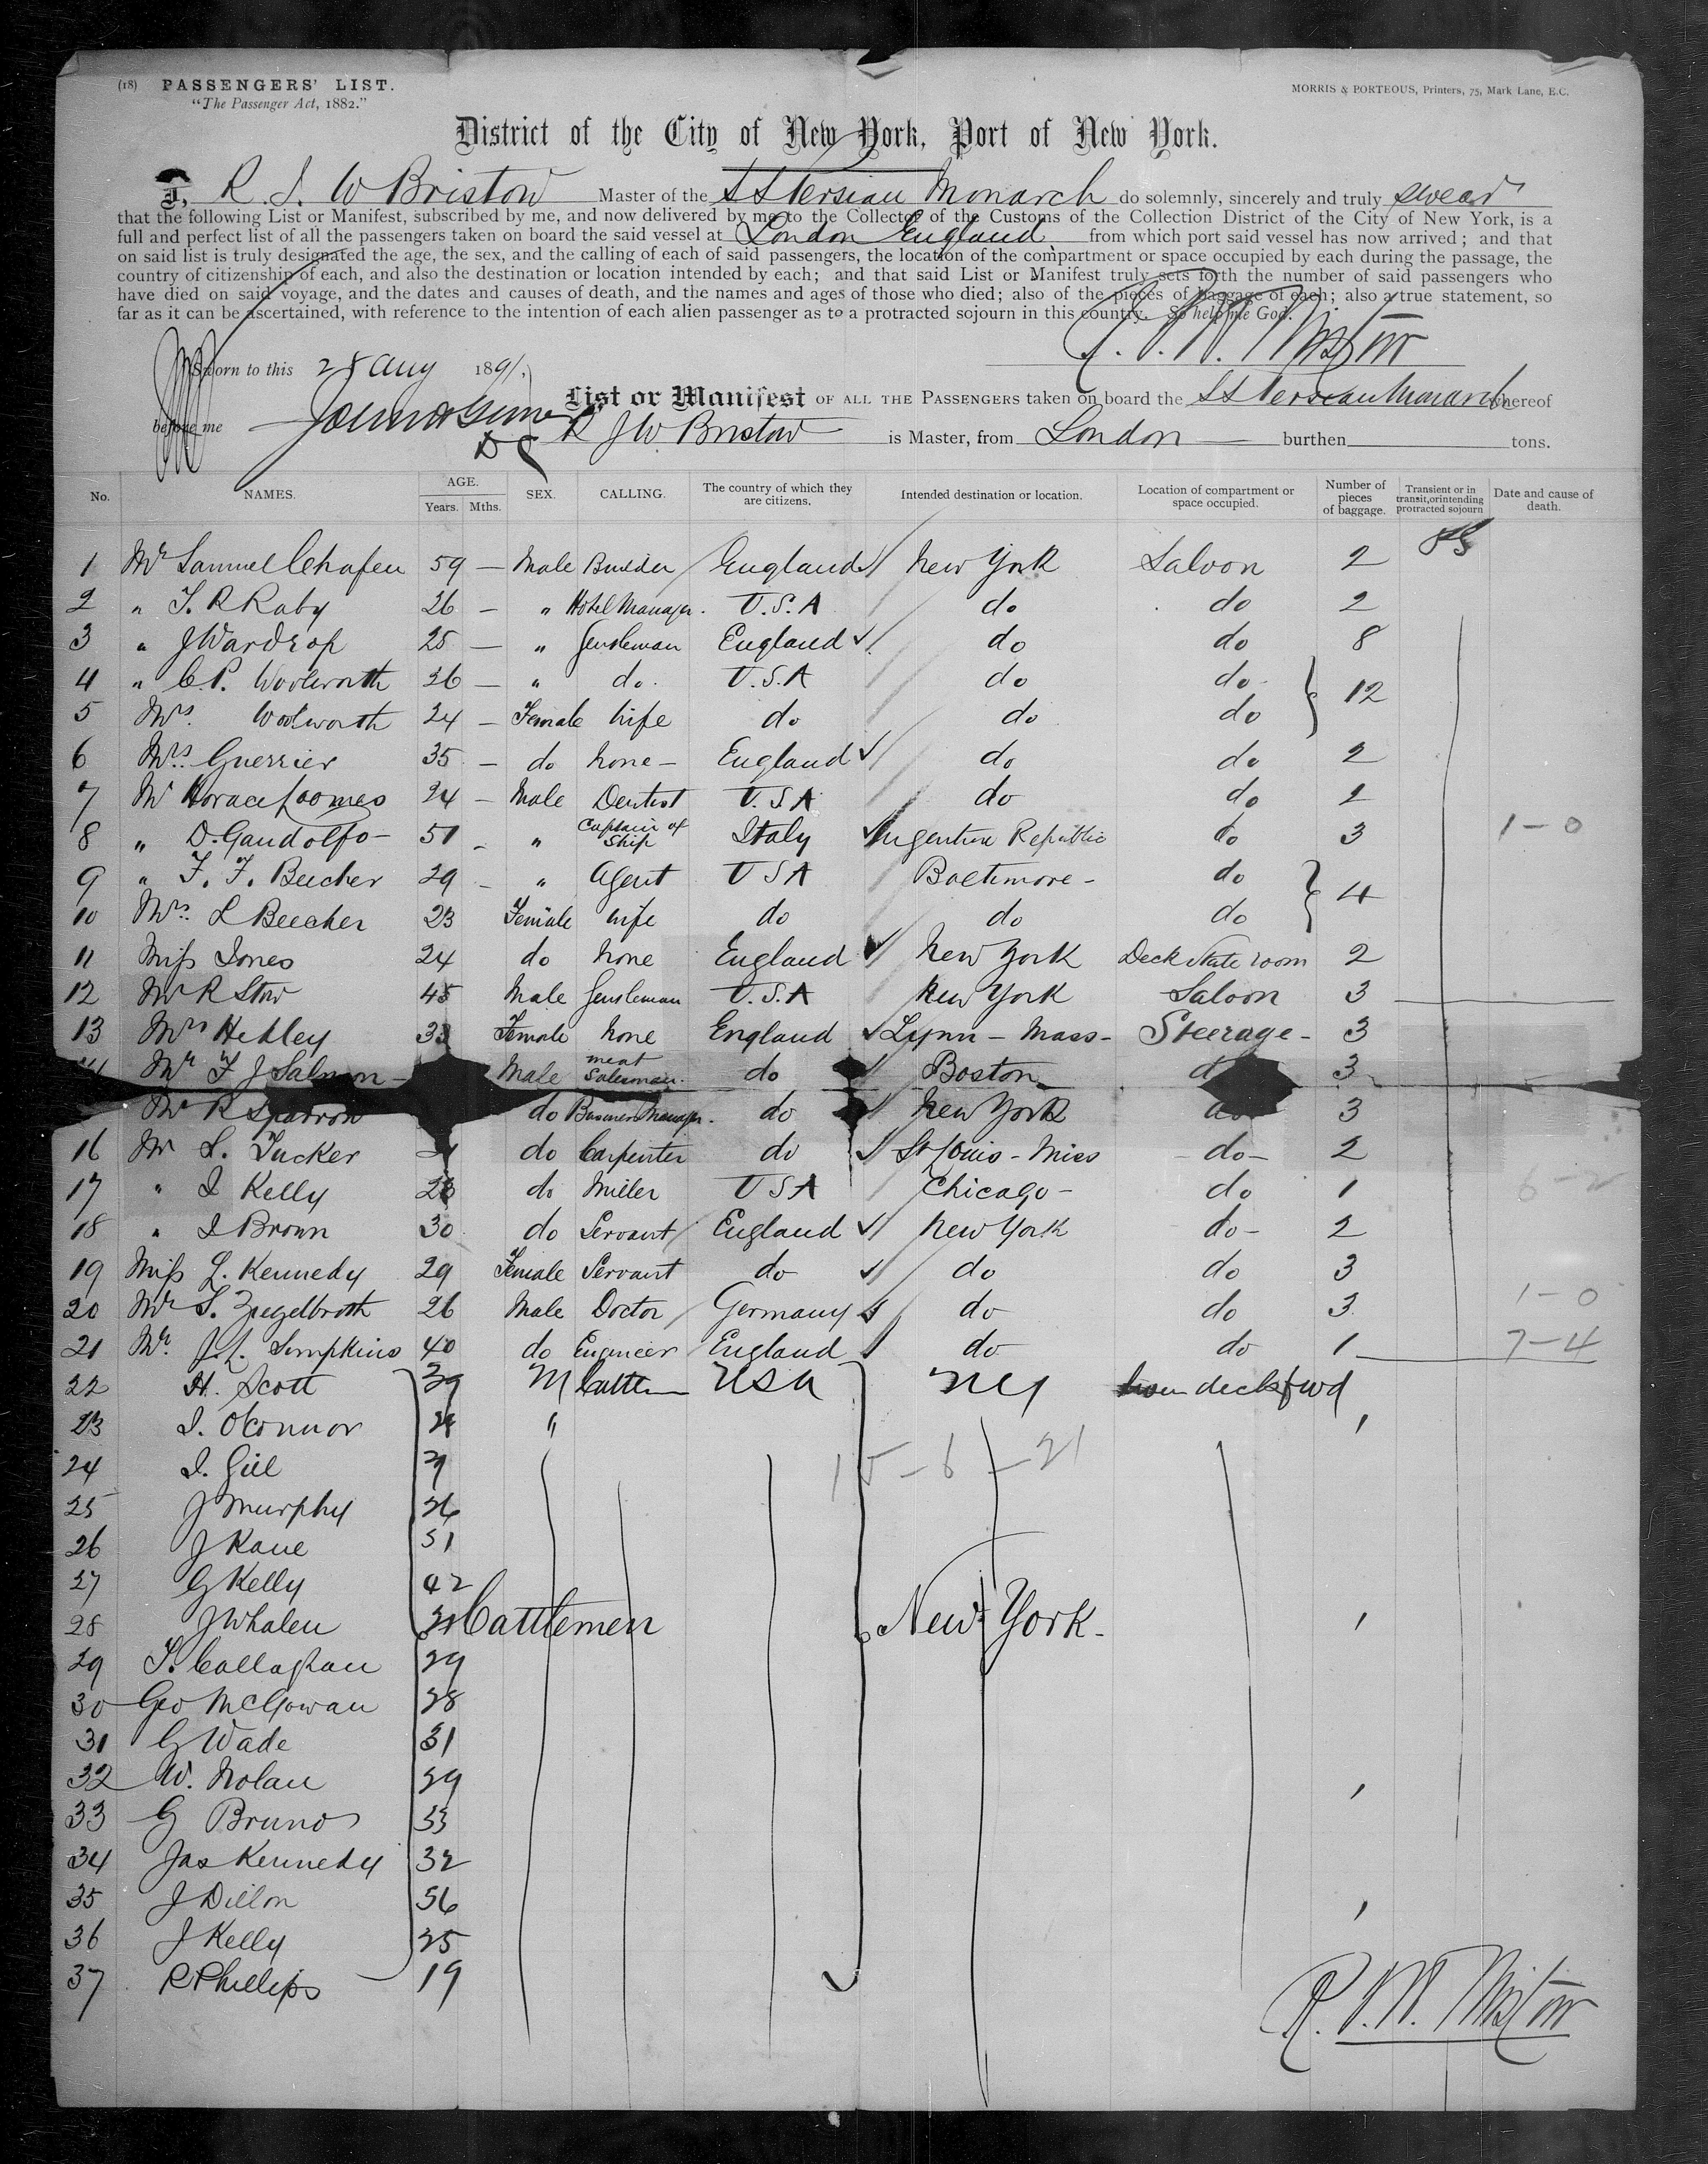 (18) PASSENGERS' LIST.
"The Passenger Act, 1882."
MORRIS & PORTEOUS, Printers, 75, Mark Lane, E.C.
District of the City of New York, Port of New York.
I, R. J. W Bristow Master of the SS Persian Monarch do solemnly, sincerely and truly swear
that the following List or Manifest, subscribed by me, and now delivered by me to the Collector of the Customs of the Collection District of the City of New York, is a
full and perfect list of all the passengers taken on board the said vessel at London England from which port said vessel has now arrived; and that
on said list is truly designated the age, the sex, and the calling of each of said passengers, the location of the compartment or space occupied by each during the passage, the
country of citizenship of each, and also the destination or location intended by each; and that said List or Manifest truly sets forth the number of said passengers who
have died on said voyage, and the dates and causes of death, and the names and ages of those who died; also of the pieces of baggage of each; also a true statement, so
far as it can be ascertained, with reference to the intention of each alien passenger as to a protracted sojourn in this country. So help me God.
R. J. W. Bristow
Sworn to this 28 Aug 1891.
List or Manifest OF ALL THE PASSENGERS taken on board the SS Persian Monarch whereof
before me R J W Bristow is Master, from London burthen tons.
No. NAMES. AGE. Years. Mths. SEX. CALLING. The country of which they are citizens. Intended destination or location. Location of compartment or space occupied. Number of pieces of baggage. Transient or in transit, or intending protracted sojourn Date and cause of death.
1 Mr Samuel Chafen 59 — Male Builder England New York Saloon 2
2 " T. R Raby 26 — " Hotel Manager. U.S.A do do 2
3 " J Wardrop 25 — " Gentleman England do do 8
4 " C. P. Woolworth 26 — " do. U.S.A do do 12
5 Mrs. Woolworth 24 — Female Wife do do do
6 Mrs. Guerrier 35 — do None — England do do 2
7 Mr Horace Loomes 24 — Male Dentist U.S A do do 2
8 " D. Gandolfo — 51 — " Captain of Ship Italy Argentine Republic do 3 1 — 0
9 " F. F. Beecher 29 — " Agent U S A Baltimore — do 4
10 Mrs. L Beecher 23 Female Wife do do do
11 Miss Jones 24 do None England New York Deck State room 2
12 Mr R Stow 45 Male Gentleman U.S.A New York Saloon 3
13 Mrs Hekley 33 Female None England Lynn — Mass — Steerage — 3
Mr F J Salmon — Male meat Salesman. do Boston 3
Mr R Sparrow do Business Manager. do New York do 3
16 Mr L. Tucker do Carpenter do St Louis — Miss — do — 2
17 " J Kelly 23 do Miller U S A Chicago — do 1 6 — 2
18 " J Brown 30 do Servant England New York do — 2
19 Miss L. Kennedy 29 Female Servant do do do 3
20 Mr S. Ziegelbroth 26 Male Doctor Germany do do 3 1 — 0
21 Mr. J. L. Simpkins 40 do Engineer England do do 1 7 — 4
22 H. Scott 39 M USA NY deck fwd
23 J. O'Connor " 1
24 J. Gill 15 — 6 — 21
25 J Murphy 26
26 J Kane 51
27 G Kelly 42
28 J Whalen Cattlemen New York. 1
29 T. Callaghan 29
30 Geo McGowan 28
31 G Wade 31
32 W. Nolan 29 1
33 G Bruno 33
34 Jas Kennedy 32
35 J Dillon 56 1
36 J Kelly 25
37 R Phillips 19
R. J. W. Bristow